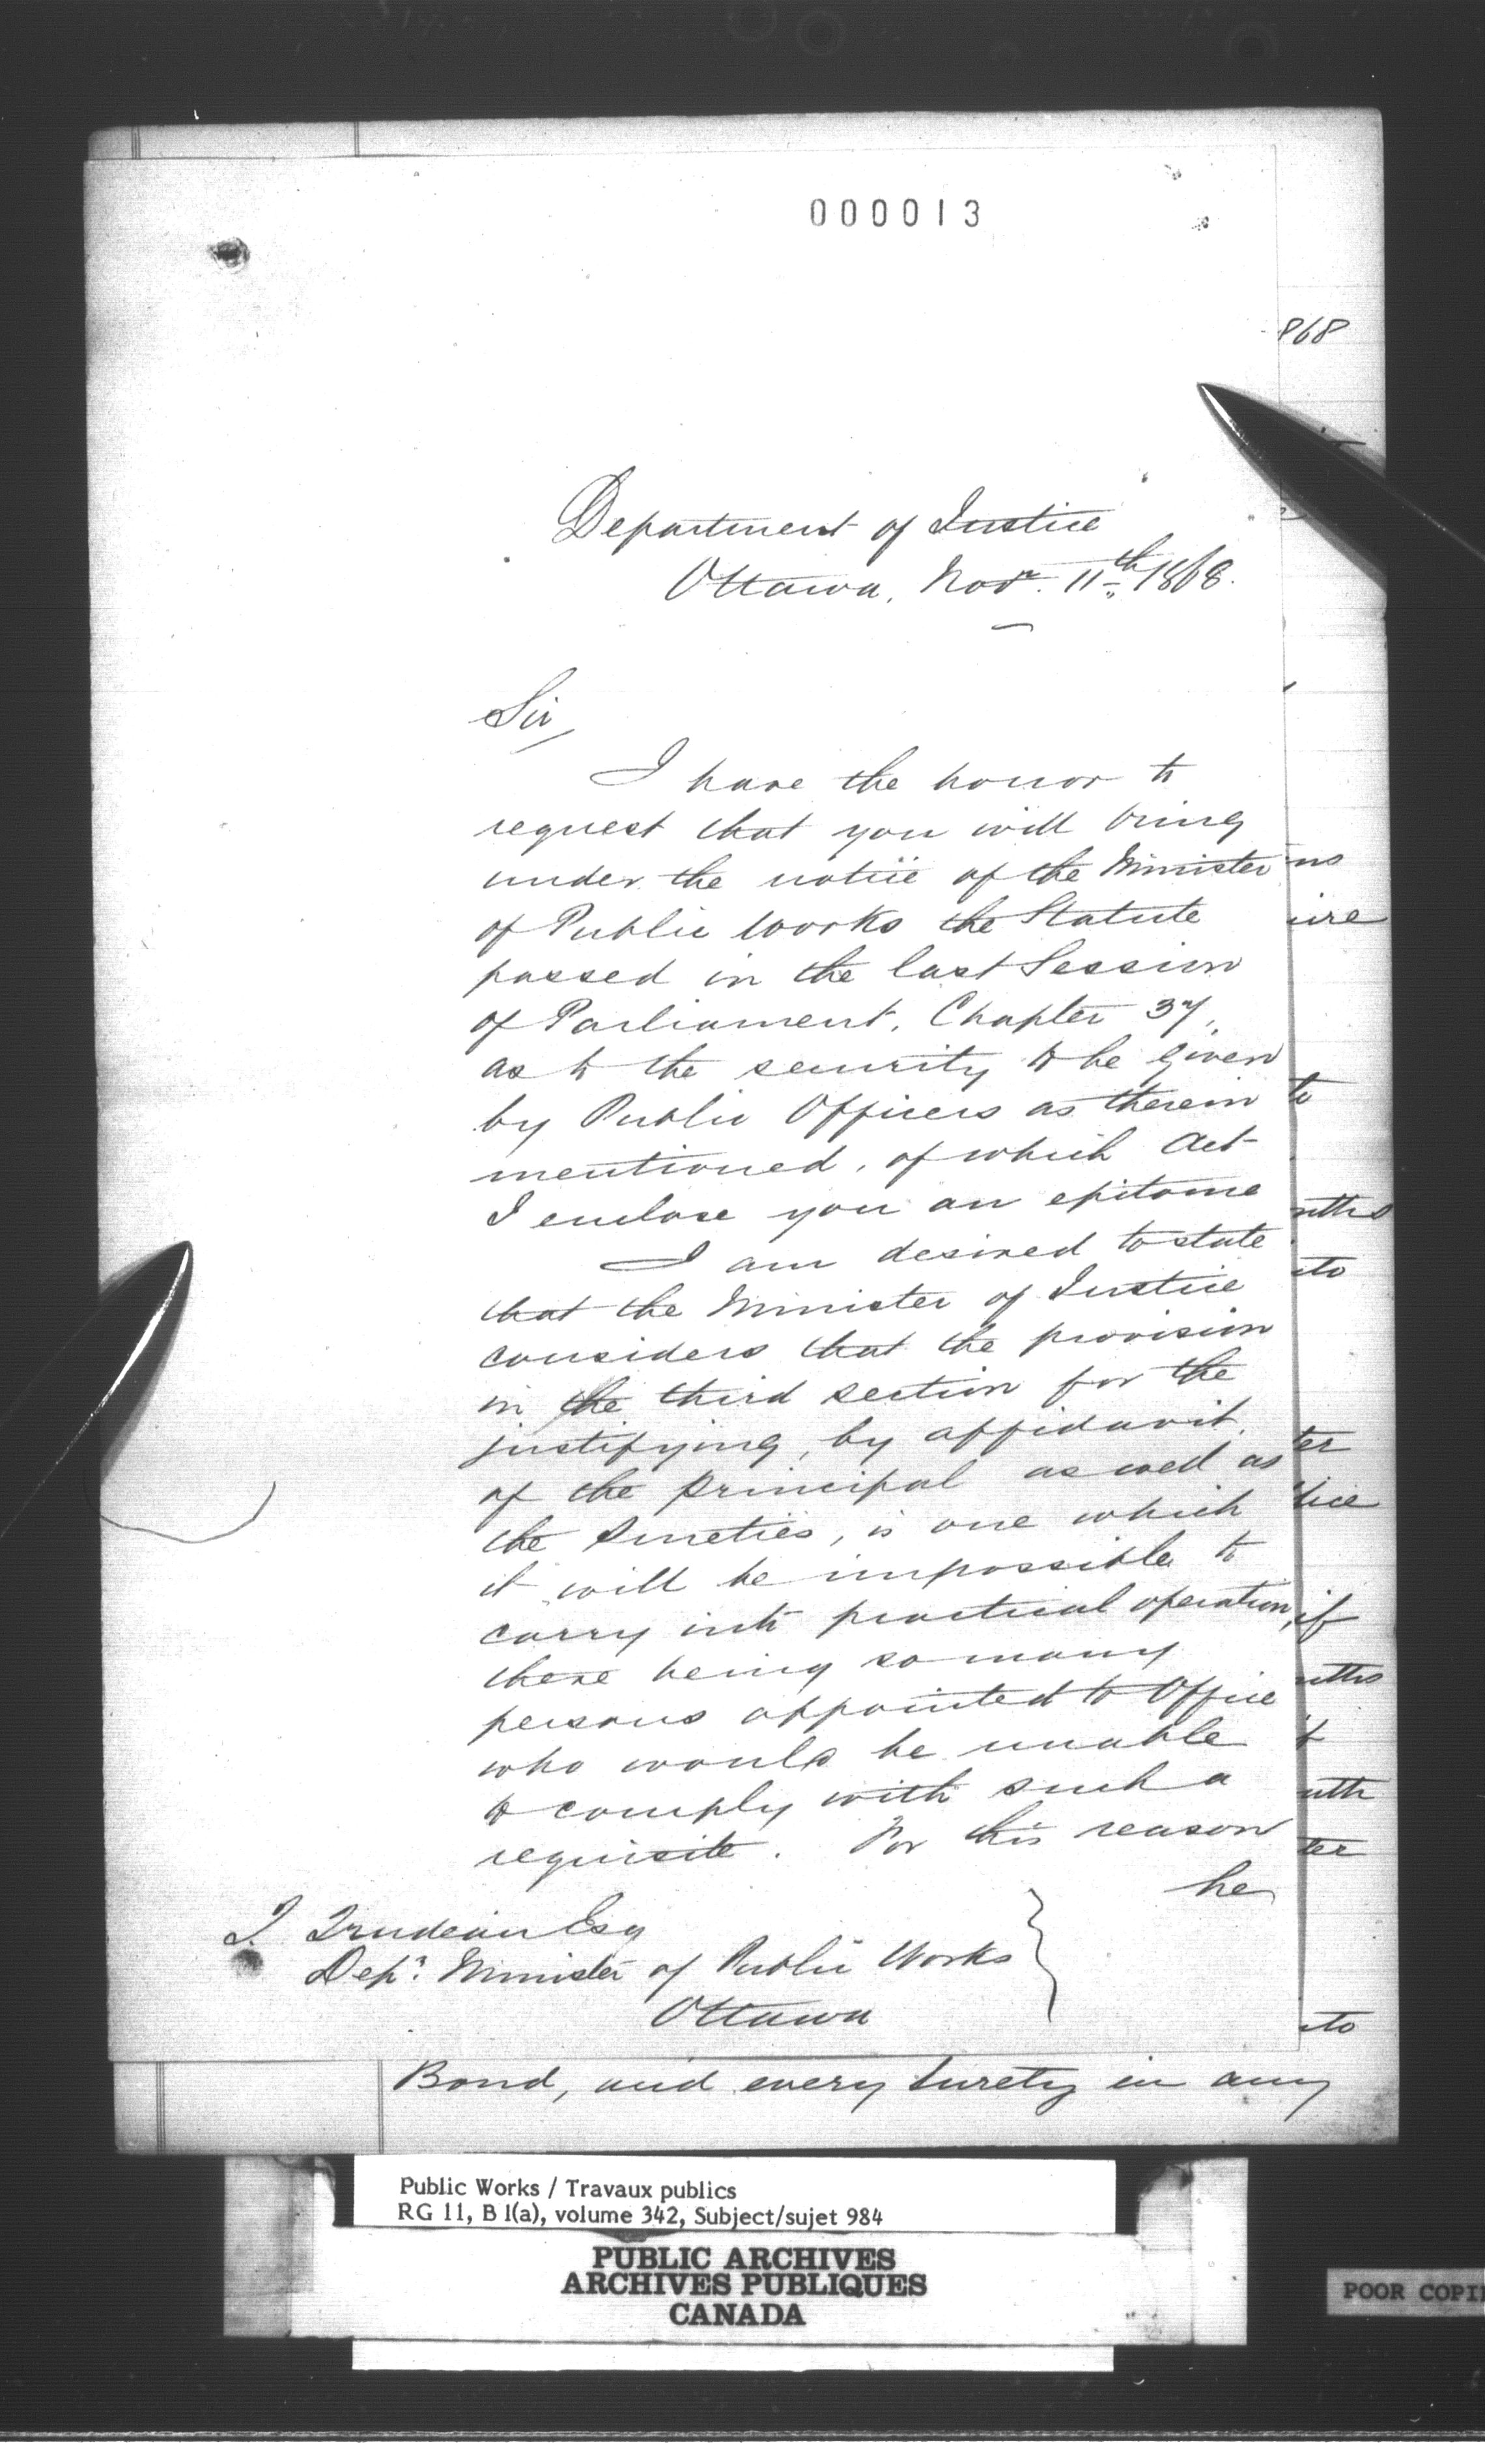 000013
868
Department of Justice
Ottawa, Novr. 11th 1868.
Sir,
I have the honor to
request that you will bring
under the notice of the Minister
of Public Works the Statute
passed in the last Session
of Parliament, Chapter 37,
as to the security to be given
by Public Officers as therein
mentioned, of which Act
I enclose you an epitome
I am desired to state
that the Minister of Justice
considers that the provision
in the third section for the
justifying, by affidavit,
of the principal as well as
the Sureties, is one which
it will be impossible to
carry into practical operation,
there being so many
persons appointed to Office
who would be unable
to comply with such a
requisite. For this reason
he
T. Trudeau Esq
Depy. Minister of Public Works
Ottawa
ns
ire
to
nths
to
ter
tice
if
nths
t
nth
ter
to
Bond, and every Surety in any
Public Works / Travaux publics
RG 11, B 1(a), volume 342, Subject/sujet 984
PUBLIC ARCHIVES
ARCHIVES PUBLIQUES
CANADA
POOR COPI